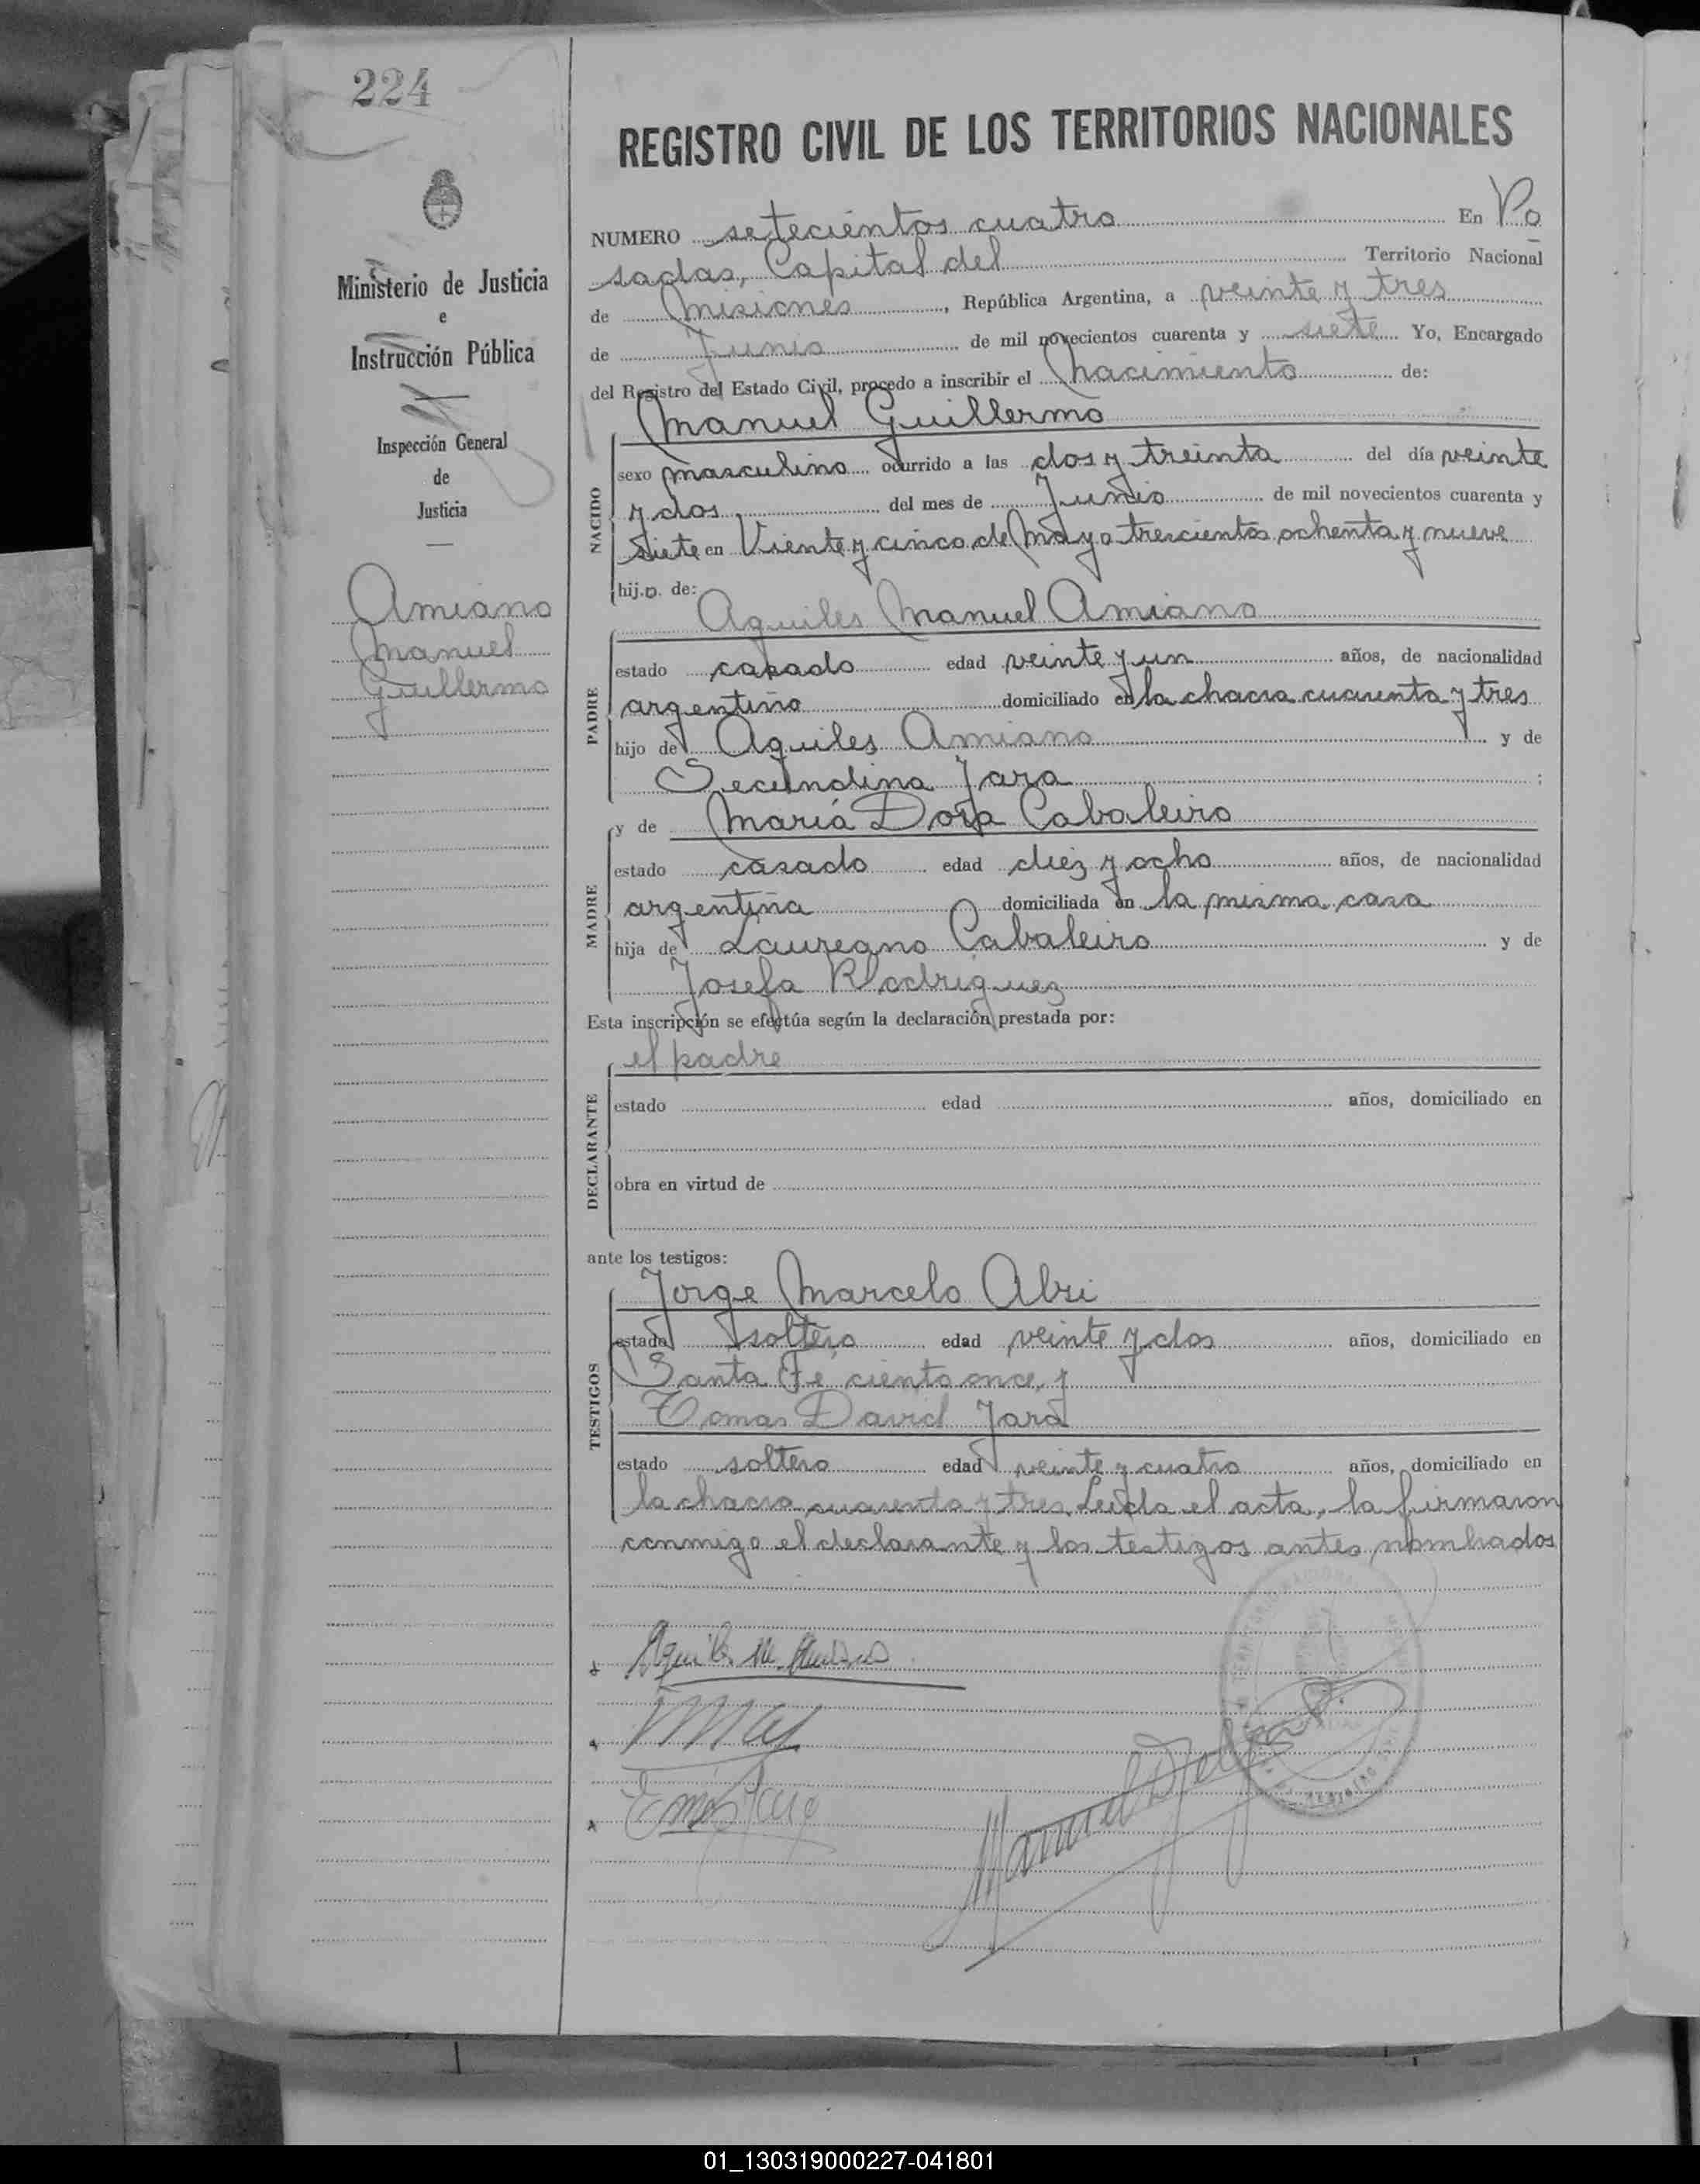 224
Ministerio de Justicia
e
Instrucción Pública
Inspección General
de
Justicia
Amiano
Manuel
Guillermo
REGISTRO CIVIL DE LOS TERRITORIOS NACIONALES
NUMERO setecientos cuatro En Po
sadas, Capital del Territorio Nacional
de Misiones, República Argentina, a veinte y tres
de Junio de mil novecientos cuarenta y siete Yo, Encargado
del Registro del Estado Civil, procedo a inscribir el nacimiento de:
Manuel Guillermo
NACIDO
sexo masculino ocurrido a las dos y treinta del día veinte
y dos del mes de Junio de mil novecientos cuarenta y
siete en Viente y cinco de Mayo trescientos ochenta y nueve
hijo de:
Aquiles Manuel Amiano
PADRE
estado casado edad veinte y un años, de nacionalidad
argentino domiciliado en la chacra cuarenta y tres
hijo de Aquiles Amiano y de
Secundina Jara ;
y de María Dora Cabaleiro
MADRE
estado casado edad diez y ocho años, de nacionalidad
argentina domiciliada en la misma casa
hija de Laureano Cabaleiro y de
Josefa Rodriguez
Esta inscripción se efectúa según la declaración prestada por:
el padre
DECLARANTE
estado edad años, domiciliado en
obra en virtud de
ante los testigos:
Jorge Marcelo Abri
TESTIGOS
estado soltero edad veinte y dos años, domiciliado en
Santa Fé ciento once, y
Tomas David Jara
estado soltero edad veinte y cuatro años, domiciliado en
la chacra cuarenta y tres. Leída el acta, la firmaron
conmigo el declarante y los testigos antes nombrados
Aquiles M. Amiano
Manuel
01_130319000227-041801